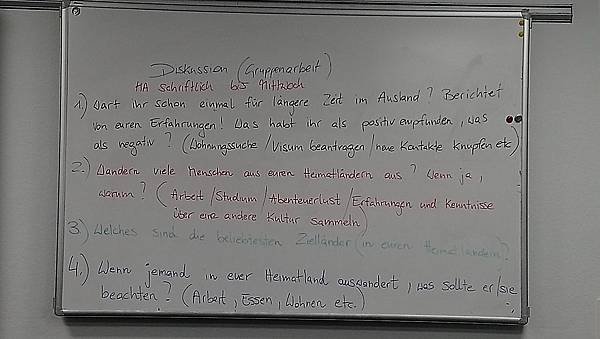 Diskussion (Gruppenarbeit)
HA schriftlich bis Mittwoch
1.) Wart ihr schon einmal für längere Zeit im Ausland? Berichtet
von euren Erfahrungen! Was habt ihr als positiv empfunden, was
als negativ? (Wohnungssuche/Visum beantragen/neue Kontakte knüpfen etc)
2.) Wandern viele Menschen aus euren Heimatländern aus? Wenn ja,
warum? (Arbeit/Studium/Abenteuerlust/Erfahrungen und Kenntnisse
über eine andere Kultur sammeln)
3.) Welches sind die beliebtesten Zielländer (in euren Heimatländern?
4.) Wenn jemand in euer Heimatland auswandert, was sollte er/sie
beachten? (Arbeit, Essen, Wohnen etc.)